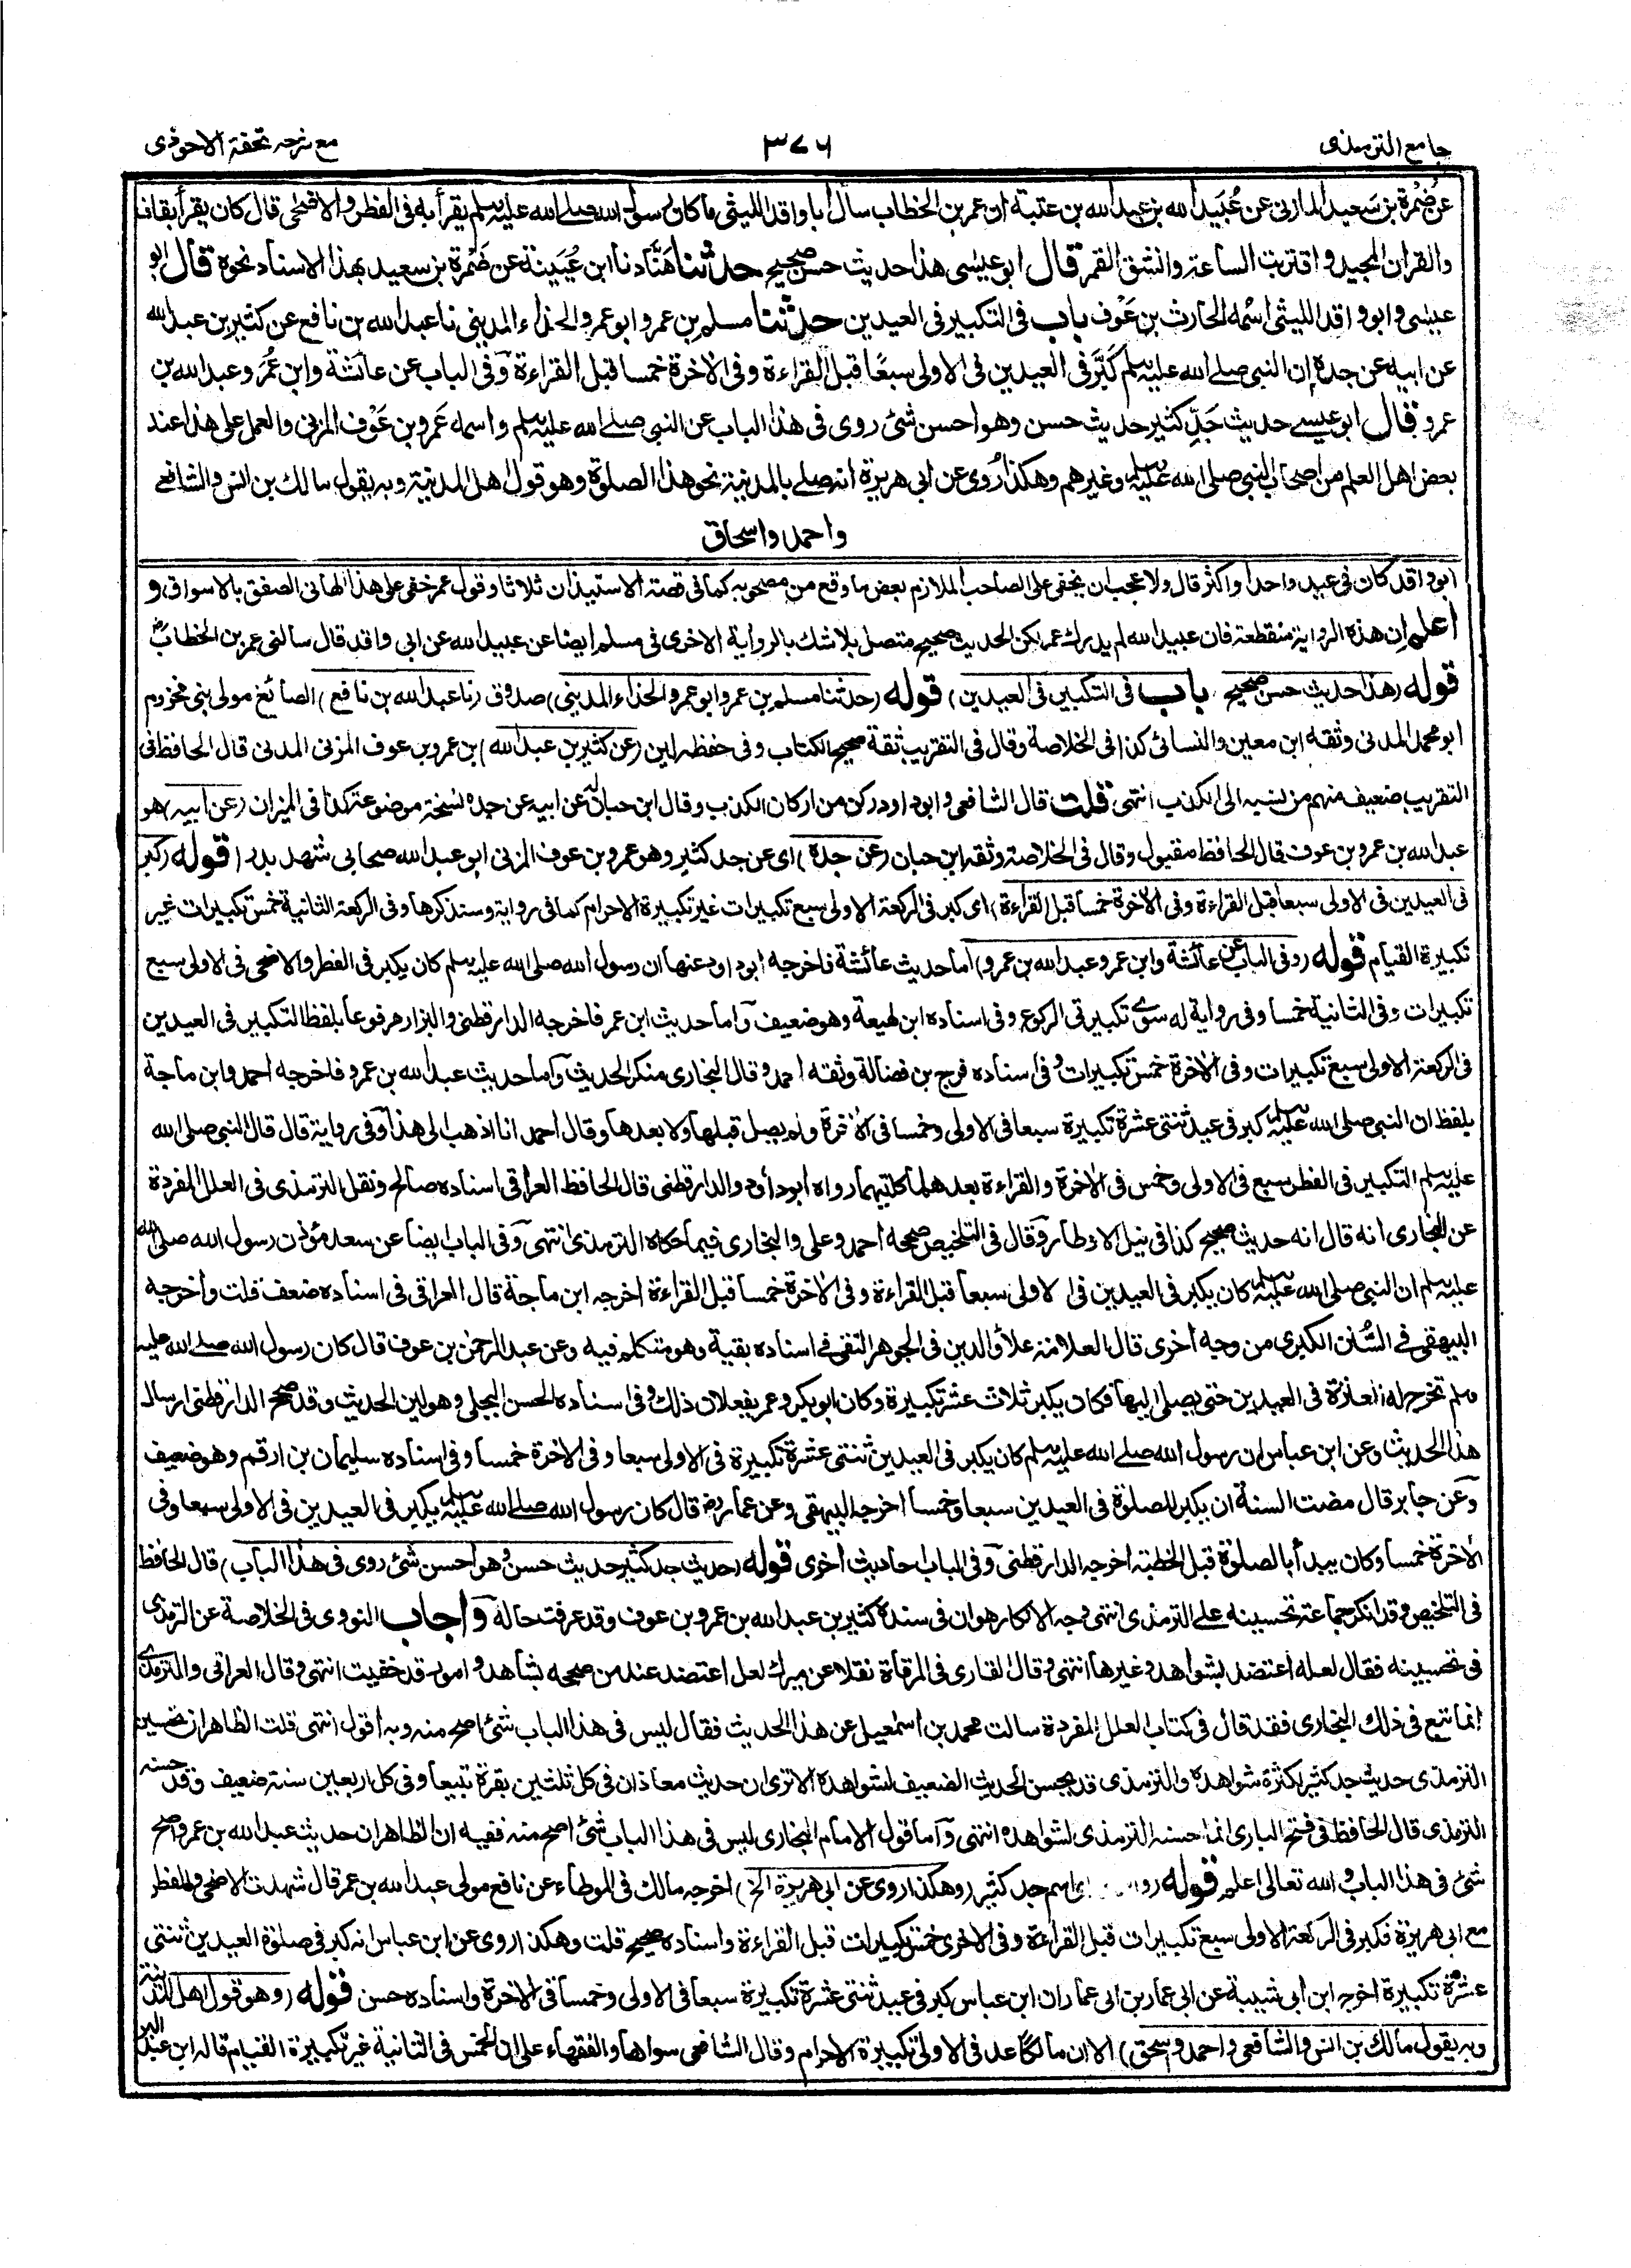 جامع الترمذى
٣٧٦
مع شرحہ تحفة الاحوذى
عن ضَمْرة بن سَعيد المازنى عن عُبَيد الله بن عبد الله بن عتبة ان عمر بن الخطاب سأل ابا واقد الليثى ما كان رسول الله صلے الله عليہ وسلم يقرأ بہ فى الفطر والاضحى قال كان يقرأ بقاف
والقران المجيد واقتربت الساعة وانشق القمر قال ابو عيسى هذا حديث حسن صحيح حدثنا هَنَّاد نا ابن عُيَينة عن ضَمْرة بن سعيد بهذا الاسناد نحوه قال ابو
عيسى وابو واقد الليثى اسمُه الحارث بن عَوْف باب فى التكبير فى العيدين حدثنا مسلم بن عمرو ابو عمرو الحذاء المدينى نا عبد الله بن نافع عن كثير بن عبد الله
عن ابيه عن جده ان النبى صلے الله عليہ وسلم كَبَّر فى العيدين فى الاولى سبعًا قبل القراءة وفى الاخرة خمسا قبل القراءة وَفى الباب عن عائشة وابن عُمَر وعبد الله بن
عمرو قال ابو عيسے حديث جَدِّ كثير حديث حسن وهو احسن شئ روى فى هذا الباب عن النبى صلے الله عليہ وسلم واسمه عَمرو بن عَوْف المزنى والعمل على هذا عند
بعض اهل العلم من اصحاب النبى صلى الله عليہ وسلم وغيرهم وهكذا رُوى عن ابى هريرة انہ صلے بالمدينة نحو هذا الصلوة وهو قول اهل المدينة وبہ يقول مالك بن انس والشافعے
واحمد واسحاق
ابو واقد كان فى عيد واحد او اكثر قال ولا عجب ان يخفى على الصاحب الملازم بعض ما وقع من مصحوبہ كما فى قصة الاستيذان ثلاثا وقول عمر خفى على هذا الهانى الصفق بالاسواق و
اعلم ان هذه الرواية منقطعة فان عبيد الله لم يدرك عمر لكن الحديث صحيح متصل بلا شك بالرواية الاخرى فى مسلم ايضا عن عبيد الله عن ابى واقد قال سألنى عمر بن الخطابؓ
قوله (هذا حديث حسن صحيح باب فى التكبير فى العيدين) قوله (حدثنا مسلم بن عمرو ابو عمرو الحذاء المدينى) صدوق (نا عبد الله بن نافع) الصائغ مولى بنى مخزوم
ابو محمد المدنى وثقه ابن معين والنسائى كذا فى الخلاصة وقال فى التقريب ثقة صحيح الكتاب وفى حفظہ لين (عن كثير بن عبد الله) بن عمرو بن عوف المزنى المدنى قال الحافظ فى
التقريب ضعيف منهم من نسبہ الى الكذب انتهى قلت قال الشافعى وابو داود ركن من اركان الكذب وقال ابن حبان له عن ابيه عن جده نسخة موضوعة كذا فى الميزان (عن ابيه) هو
عبد الله بن عمرو بن عوف قال الحافظ مقبول وقال فى الخلاصة وثقه ابن حبان (عن جده) اى عن جد كثير وهو عمرو بن عوف المزنى ابو عبد الله صحابى شهد بدرا قوله (كبر
فى العيدين فى الاولى سبعا قبل القراءة وفى الاخرة خمسا قبل القراءة) اى كبر فى الركعة الاولى سبع تكبيرات غير تكبيرة الاحرام كما فى رواية وسنذكرها وفى الركعة الثانية خمس تكبيرات غير
تكبيرة القيام قوله (وفى الباب عن عائشة وابن عمر وعبد الله بن عمرو) اما حديث عائشة فاخرجه ابو داود عنها ان رسول الله صلى الله عليہ وسلم كان يكبر فى الفطر والاضحى فى الاولى سبع
تكبيرات وفى الثانية خمسا وفى رواية له سوے تكبيرتى الركوع وفى اسناده ابن لهيعة وهو ضعيف وَاما حديث ابن عمر فاخرجه الدارقطنى والبزار مرفوعا بلفظ التكبير فى العيدين
فى الركعة الاولى سبع تكبيرات وفى الاخرة خمس تكبيرات وفى اسناده فرج بن فضالة وثقه احمد وقال البخارى منكر الحديث وَاما حديث عبد الله بن عمرو فاخرجه احمد وابن ماجة
بلفظ ان النبى صلى الله عليہ وسلم كبر فى عيد ثنتى عشرة تكبيرة سبعا فى الاولى وخمسا فى الاخرة ولم يصل قبلها ولا بعدها وقال احمد انا اذهب الى هذا وَفى رواية قال قال النبى صلى الله
عليہ وسلم التكبير فى الفطر سبع فى الاولى وخمس فى الاخرة والقراءة بعدهما كلتيهما رواه ابو داؤد والدارقطنى قال الحافظ العراقى اسناده صالح ونقل الترمذى فى العلل المفردة
عن البخارى انه قال انه حديث صحيح كذا فى نيل الاوطار وَقال فى التلخيص صححه احمد وعلى والبخارى فيما حكاه الترمذى انتهى وَفى الباب ايضا عن سعد مؤذن رسول الله صلى الله
عليہ وسلم ان النبى صلى الله عليہ وسلم كان يكبر فى العيدين فى الاولى سبعا قبل القراءة وفى الاخرة خمسا قبل القراءة اخرجہ ابن ماجة قال العراقى فى اسناده ضعف قلت واخرجه
البيهقى فے السُّنن الكبرى من وجه اخرى قال العلامة علاؤ الدين فى الجوهر النقى فے اسناده بقية وهو متكلم فيه وعن عبد الرحمٰن بن عوف قال كان رسول الله صلے الله عليہ
وسلم تخرج له العنزة فى العيدين حتى يصلى اليها فكان يكبر ثلاث عشر تكبيرة وكان ابو بكر وعمر يفعلان ذلك وفى اسناده الحسن البجلى وهو لين الحديث وقد صحح الدارقطنى ارسال
هذا الحديث وعن ابن عباس ان رسول الله صلے الله عليہ وسلم كان يكبر فى العيدين ثنتى عشرة تكبيرة فى الاولى سبعا وفى الاخرة خمسا وفى اسناده سليمان بن ارقم وهو ضعيف
وَعن جابر قال مضت السنة ان يكبر للصلوة فى العيدين سبعا وخمسا اخرجه البيهقى وعن عمارؓ قال كان رسول الله صلے الله عليہ وسلم يكبر فى العيدين فى الاولى سبعا وفى
الاخرة خمسا وكان يبدأ بالصلوة قبل الخطبة اخرجہ الدارقطنى وَفى الباب احاديث اخرى قوله (حديث جد كثير حديث حسن وهو احسن شئ روى فى هذا الباب) قال الحافظ
فى التلخيص وقد انكر جماعة تحسينه على الترمذى انتهى وجہ الانكار هو ان فى سنده كثير بن عبد الله بن عمرو بن عوف وقد عرفت حاله وَاجاب النووى فى الخلاصة عن الترمذى
فى تحسينه فقال لعله اعتضد بشواهد وغيرها انتهى وقال القارى فى المرقاة نقلا عن ميرك لعل اعتضد عند من صححه بشاهد وامور قد خفيت انتهى وقال العراقى والترمذى
انما تبع فى ذلك البخارى فقد قال فى كتاب العلل المفردة سالت محمد بن اسمٰعيل عن هذا الحديث فقال ليس فى هذا الباب شئ اصح منہ وبہ اقول انتهى قلت الظاهر ان تحسين
الترمذى حديث جد كثير لكثرة شواهده والترمذى قد يحسن الحديث الضعيف لشواهده الا ترى ان حديث معاذ ان فى كل ثلثين بقرة تبيعا وفى كل اربعين سنة ضعيف وَقد حسنه
الترمذى قال الحافظ فى فتح البارى انما حسنه الترمذى لشواهده انتهى وَاما قول الامام البخارى ليس فى هذا الباب شئ اصح منہ ففيه ان الظاهر ان حديث عبد الله بن عمرو اصح
شئ فى هذا الباب والله تعالى اعلم قوله (و اى اسم جد كثير (وهكذا روى عن ابى هريرة الخ) اخرجہ مالك فى الموطاء عن نافع مولى عبد الله بن عمر قال شهدت الاضحى والفطر
مع ابى هريرة فكبر فى الركعة الاولى سبع تكبيرات قبل القراءة وفى الاخرى خمس تكبيرات قبل القراءة واسناده صحيح قلت وهكذا روى عن ابن عباس انہ كبر فى صلوة العيدين ثنتى
عشرة تكبيرة اخرجہ ابن ابى شيبة عن ابى عمار بن ابى عمار ان ابن عباس كبر فى عيد ثنتى عشرة تكبيرة سبعا فى الاولى وخمسا فى الاخرة واسناده حسن قوله (وهو قول اهل المدينة
وبہ يقول مالك بن انس والشافعى واحمد واسحق) الا ان مالكا عد فى الاولى تكبيرة الاحرام وقال الشافعى سواها والفقهاء على ان الخمس فى الثانية غير تكبيرة القيام قالہ ابن عبد البر